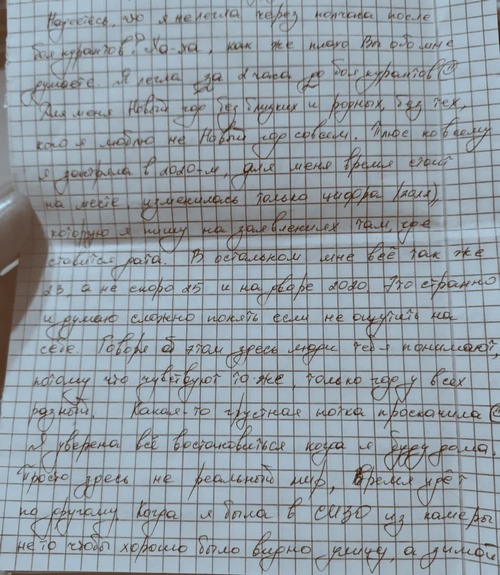 Надеетесь, что я не легла через полчаса после
боя курантов? Ха-ха, как же плохо Вы обо мне
думаете. Я легла за 2 часа до боя курантов
Для меня Новый год без близких и родных, без тех,
кого я люблю не Новый год совсем. Плюс ко всему
я застряла в 2020-м, для меня время стоит
на месте, изменилась только цифра
которую я пишу на заявлениях там, где
ставится дата. В остальном мне всё так же
23, а не скоро 25 и на дворе 2020. Это странно
и думаю сложно понять если не ощутить на
себе. Говоря об этом здесь люди тебя понимают,
потому что чувствуют то же, только год у всех
разный. Какая-то грустная нотка проскачила
Я уверена всё востановиться когда я буду дома.
Просто здесь не реальный мир, время идёт
по другому. Когда я была в СИЗО из камеры
не то чтобы хорошо было видно улицу, а зимой